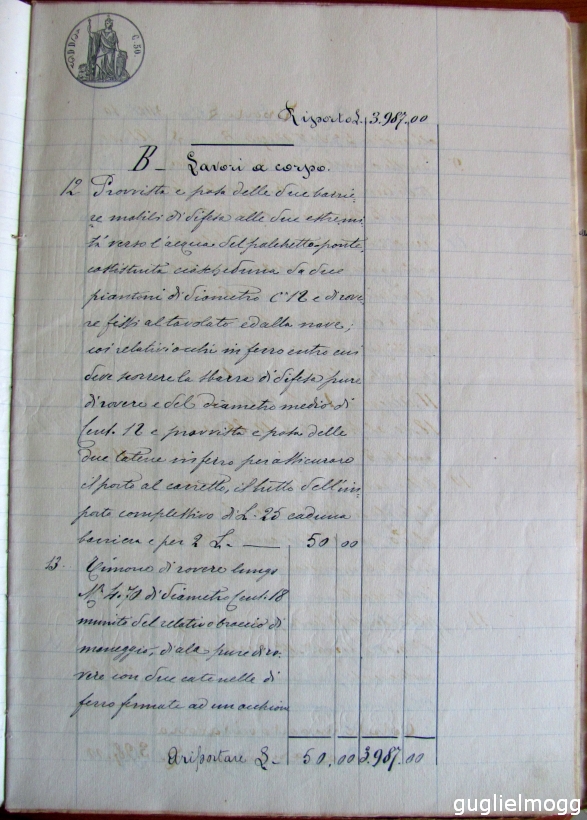 C. 50
Riporto L. 3.987.00
B – Lavori a corpo.
12 Provvista e posa delle due barrie-
re mobili di difesa alle due estremi-
tà verso l'acqua del palchetto a ponte,
costituita ciascheduna da due
piantoni di diametro C. 12 e di rove-
re fissi al tavolato ed alla nave;
coi relativi occhi in ferro entro cui
deve scorrere la sbarra di difesa pure
di rovere e del diametro medio di
Cent. 12 e provvista e posa delle
due catene in ferro per assicurare
il porto al carretto, il tutto dell'im-
porto complessivo di L. 25 caduna
barriera e per 2 L. — 50 00
13. Timone di rovere lungo
M. 4.70 di diametro Cent. 18
munito del relativo braccio di
maneggio, di ala pure di ro-
vere con due catenelle di
ferro fermate ad un occhione
A riportare L. 50.00 3.987.00
guglielmogg